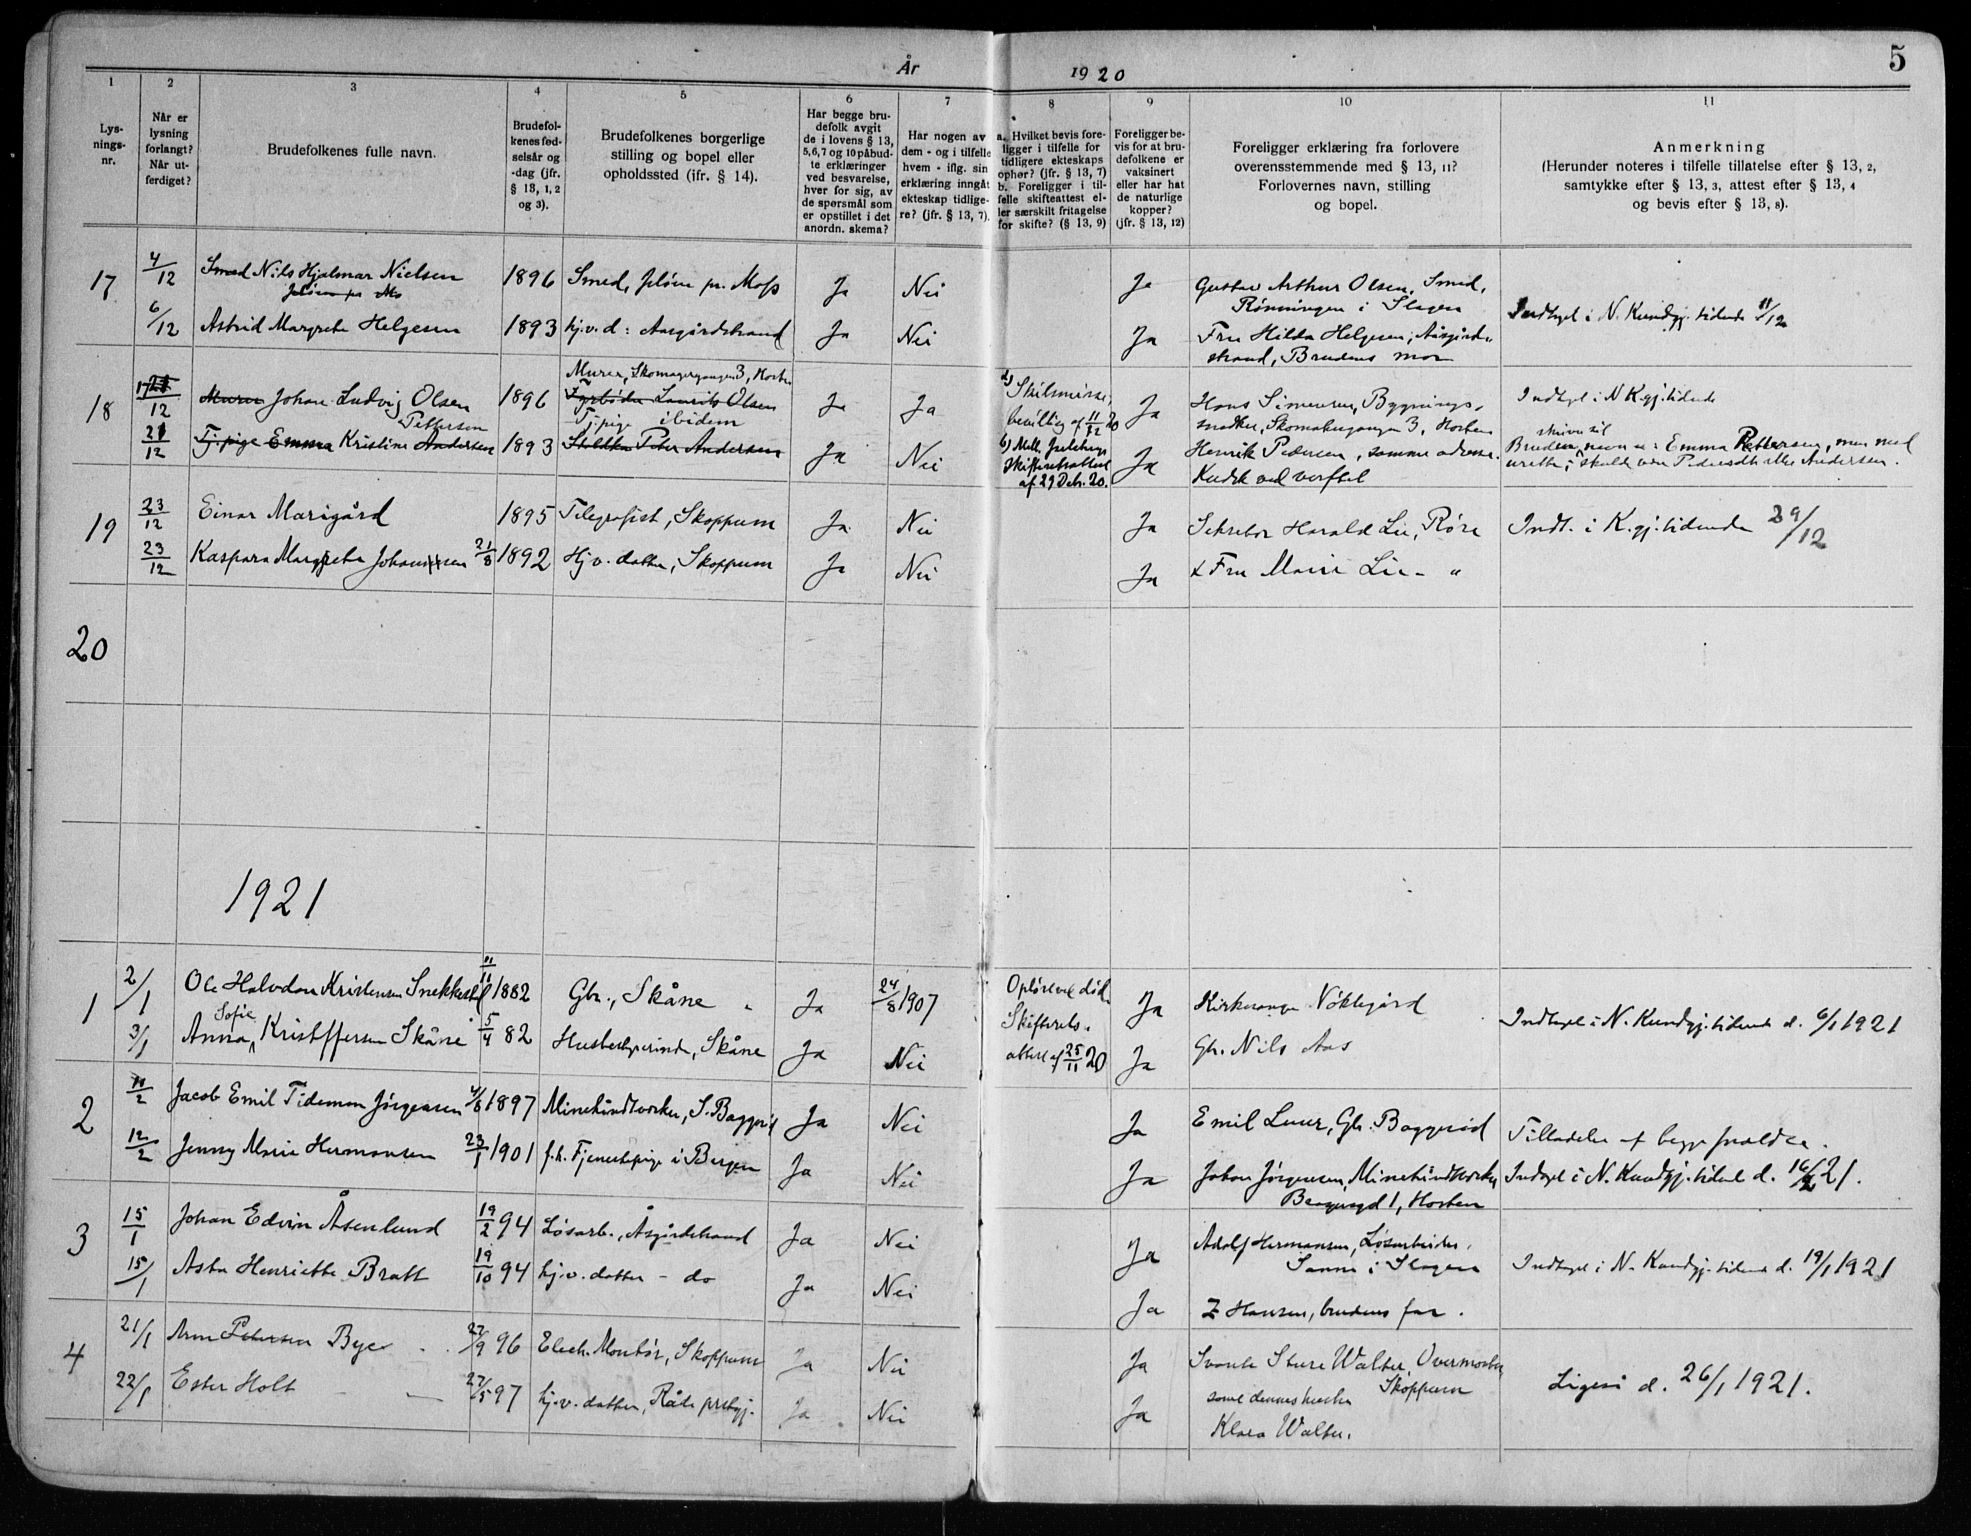 År 1920
5
1
2
3
4
5
6
7
8
9
10
11
Lys-
nings-
nr.
Når er
lysning
forlangt?
Når ut-
ferdiget?
Brudefolkenes fulle navn.
Brudefol-
kenes fød-
selsår og
-dag (jfr.
§ 13, 1, 2
og 3).
Brudefolkenes borgerlige
stilling og bopel eller
opholdssted (ifr. § 14).
Har begge bru-
defolk avgit
de i lovens § 13,
5,6,7 og 10 påbud-
te erklæringer
ved besvarelse,
hver for sig, av
de spørsmål som
er opstillet i det
anordn. skema?
Har nogen av
dem - og i tilfelle
hvem - iflg. sin
erklæring inngåt
ekteskap tidlige-
re? (jfr. § 13, 7).
a. Hvilket bevis fore-
ligger i tilfelle for
tidligere ekteskaps
ophør? (jfr. § 13, 7)
b. Foreligger i til-
felle skifteattest el-
ler særskilt fritagelse
for skifte? (§ 13, 9)
Foreligger be-
vis for at bru-
defolkene er
vaksinert
eller har hat
de naturlige
kopper?
(jfr. § 13, 12)
Foreligger erklæring fra forlovere
overensstemmende med § 13, 11?
Forlovernes navn, stilling
og bopel.
Anmerkning
(Herunder noteres i tilfelle tillatelse efter § 13, 2,
samtykke efter § 13, 3, attest efter § 13, 4
og bevis efter § 13, 8).
17 4/12 Smed Nils Hjalmar Nielsen 1896 Smed, Jeløen pr. Moss Ja Nei Ja Gustav Arthur Olsen, Smed,
Jeløen pr. Mo
Rønningen i Slagen
Indtaget i N. Kundgj. tidende 11/12
6/12 Astrid Margrete Helgesen 1893 hj.v.d: Aasgårdstrand Ja Nei Ja Fru Hilda Helgesen, Aasgård-
strand, Brudens mor
Murer, Skomagergangen 3, Horten
18 17/12 Murer Johan Ludvig Olsen 1896 Fyrbøder Laurits Olsen Ja Ja a) Skilsmisse, Ja Hans Simensen, Bygnings- Indtaget i N Kgj. tidende
bevilling af 11/12 20 snedker, Skomakergangen 3, Horten
Pettersen Tj. pige ibidem
21/12 Tj. pige Emma Kristine Andersen 1893 Peter Andersen Ja Nei b) Ja Henrik Pedersen, samme adresse.
Skifteretsattest
af 29 Debr. 20. Kusk ved verftet
skriver sit
Brudens navn: Emma Pettersen, men med
urette; skulde være Pedersdtr. eller Andersen.
19 23/12 Einar Marigård 1895 Telegrafist, Skoppum Ja Nei Ja Harald Lie, Røre Indt. i K.gj. tidende 29/12
23/12 Kaspara Margrete Johannessen 21/8 1892 Hj.v. datter, Skoppum Ja Nei Ja & Fru Marie Lie - "
20
1921
1 2/1 Ole Halvdan Kristensen Snekkestad 11/11 1882 Gbr., Skåne Ja 24/8 1907 Opløst ved død. Ja Kirkesanger Nøklegård
Sofie Skifterets-
3/1 Anna Kristoffersen Skåne 5/4 82 Husbestyrerinde, Skåne Ja Nei attest af 25/11 20 Ja Gb. Nils Aas
Indtaget i N. Kundgj. tidende d. 6/1 1921
2 11/2 Jacob Emil Tidemann Jørgensen 4/8 1897 Minehåndtverker, S. Baggerød Ja Nei Ja Emil Luur, Gb. Baggerød Tilladelse af begge forældre.
12/2 Jenny Marie Hermansen 23/1 1901 f.h. Tjenestepige i Bergen Ja Nei Ja Johan Jørgensen, Minehåndtverker Indtaget i N. Kundgj. tidende d. 16/2 21.
1, Horten
3 15/1 Johan Edvin Åsenlund 19/2 94 Løsarb., Åsgårdstrand Ja Nei Ja Adolf Hermansen, Løsarbeider,
i Slagen
15/1 Asta Henriette Bratt 19/10 94 hj.v. datter - do Ja Nei Ja Z Hansen, brudens far.
Indtaget i N. Kundgj. tidende d. 19/1 1921
4 21/1 Arne Petersen Bye 27/9 96 Elect. Montør, Skoppum Ja Nei Ja Svante Sture Walter, Overmontør,
Skoppum
22/1 Ester Holt 27/5 97 hj.v. datter, Råde prestgj. Ja Nei Ja samt dennes hustru
Klara Walter.
Ligeså d. 26/1 1921.